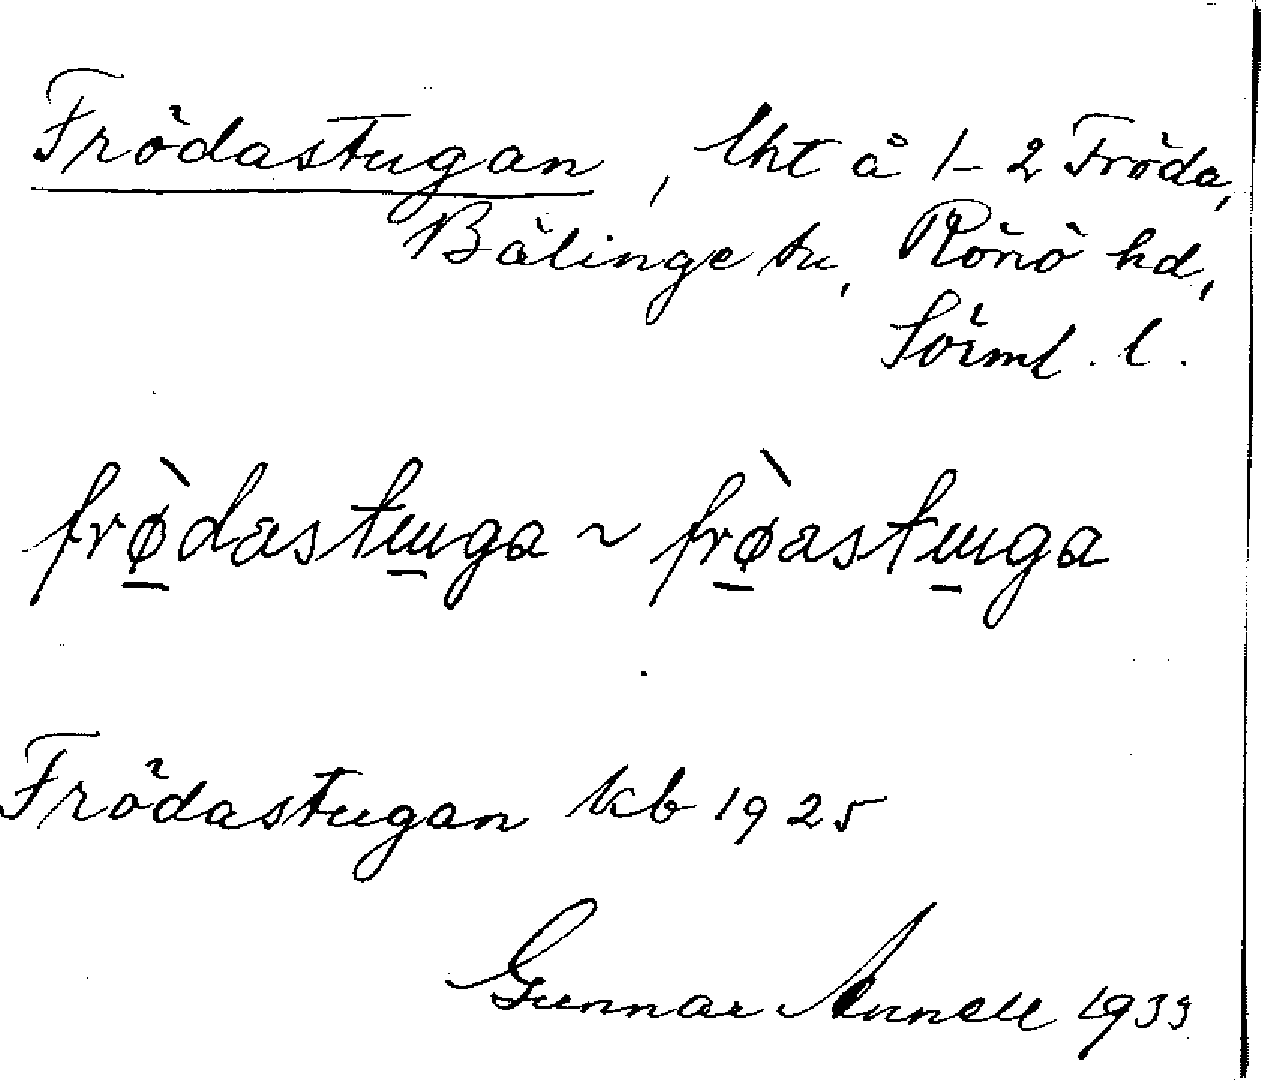 Frödastugan, lht å 1-2 Fröda,
Bälinge sn, Rönö hd,
Sörml. l.
frø̀dastuga ~ frø̀astuga
Frödastugan kb 1925
Gunnar Annell 1933